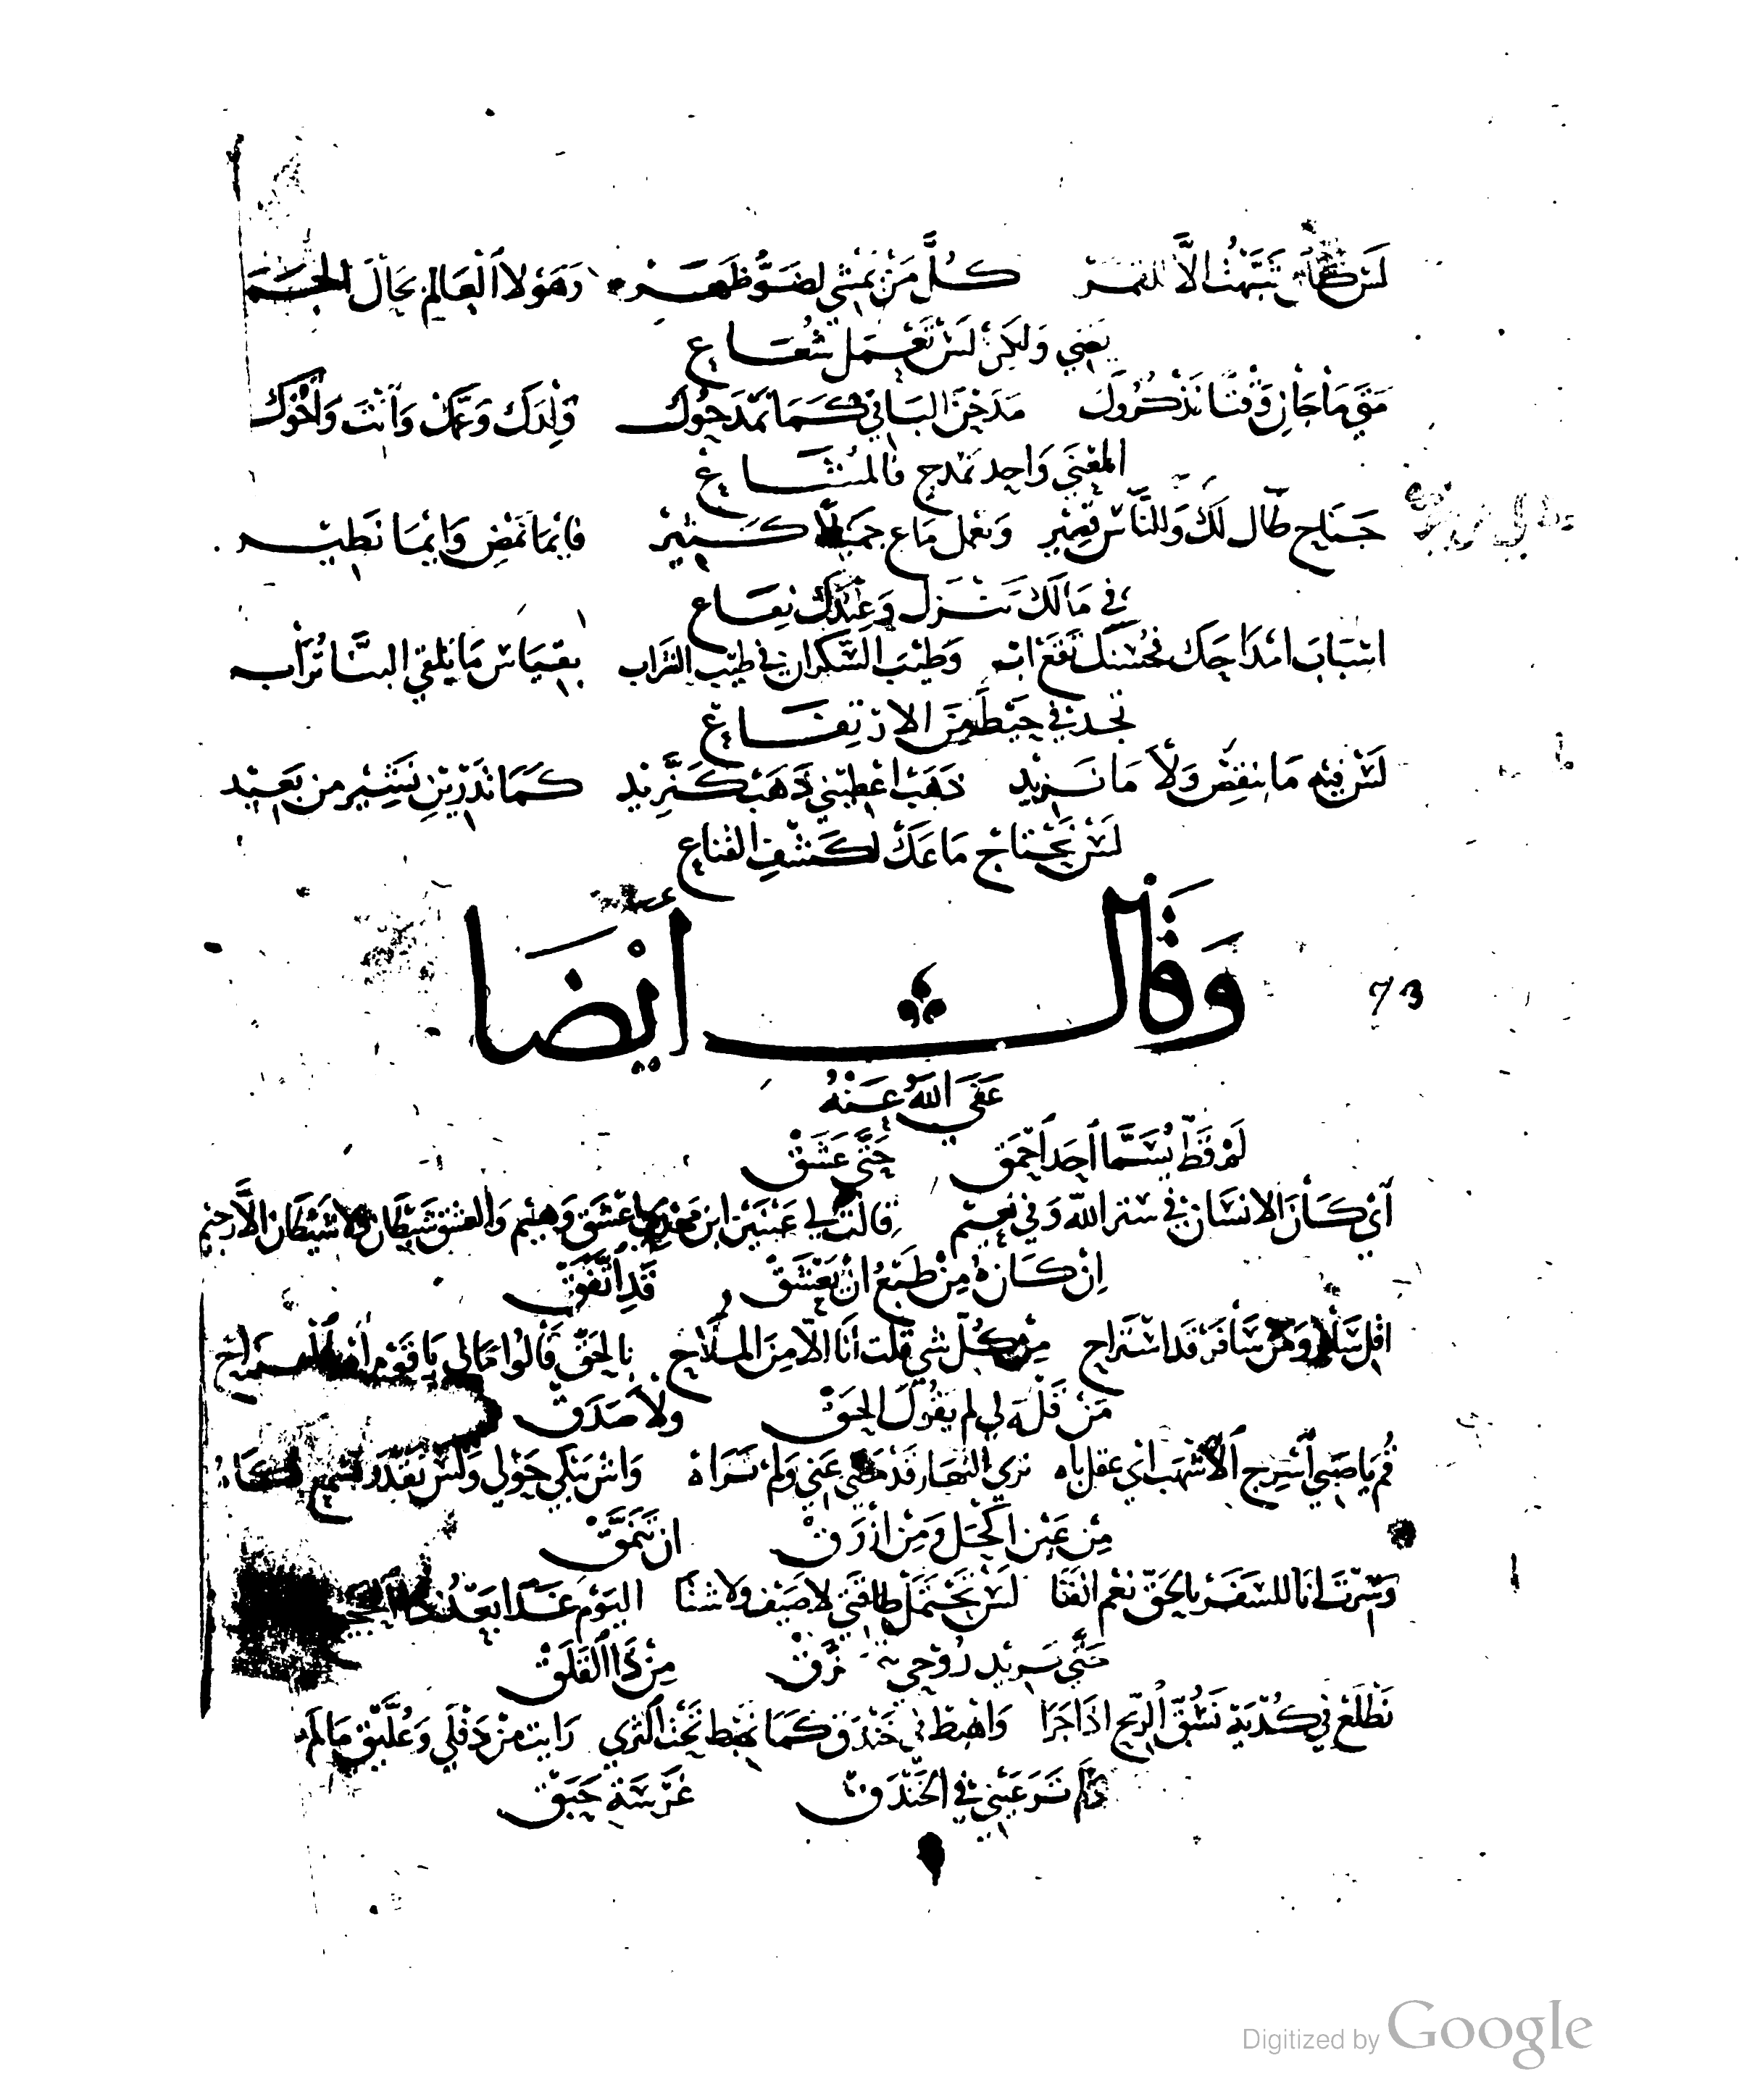 لس كان تبهت الا للقمر كُلَّ مَنْ يَمْشي لضَوُّ ظَهَر وَهَوْلا اَلْعَالم بحَالَ الحَجَر
يَعْني وَلكِنْ لَسْ تَعْمَل شُعَاع
مَتى مَا جَاز وَقْتًا نَذْكُرُوكَ مَدَحْنَ البَاقي كَمَا نَمْدَحُوك وَلِدَك وَعَمَّك وَاَنْتَ وَاَخُوك
المعْنَى وَاحِد نَمْدح فالمُشَاع
جَنَاح طَال لَكَ وَللنَّاسْ قصِير وَنعْمل مَاع جَمَلاً كَثِيرْ فايْمَا نَمْض وَايْمَا نَطِير
في مَالَكْ نَنْزَل وَعِنْدَكْ نِقَاع
اسْبَابَ امْدَاحَك بحُسْنَكْ تَقَع ابْ وَطيْبَ السَّكرَان في طيْب الشَّرَاب بقيَاس مَا يلقي البنَّا تُرَاب
نجد في حَيْطَ مِنَ الارْتِفَاع
لَسْ فيْه مَا ينقِصْ وَلاَ مَا نَزيْد ذَهَبْ اعْطيْني ذَهَبْ كَنّزيْد كَمَا نَدْرِيْن نَشِيْر من بَعيْد
لَسْ نَحْتَاج مَاعَكْ لكَشْف القناع
وَقَال اَيْضًا
73
عَفَى اللّٰهُ عَنْهُ
لَمْ قَطّ يُسَمَّا اَحَد اَحْمَق حَتَّى عَشَقْ
اَيْ كَانَ الانسَان في ستر اللّه وَفي نعِيْم قالتْ لي عَيْنَيْن ابن اعْشَق وَهيْم وَالعشق شَيْطَان ولا شَيْطَان الاَّ رَجيْم
اِنْ كَانَهْ مِنْ طَبْعُ انْ يَعْشَقْ قَدِ اتَّفَقْ
اقل سَلا وَمَنْ سَافَرْ قَد اسْتَرَاح مِنْ كُلّ شي قلت اَنَا الاّ مِنَ المِلاَح بالحَقّ قَالُوا مَا لي يَا قَوْم
مَنْ قَلْهَ لي لم يقُوْلَ الحَقْ وَلاَ صَدَقْ
قُمْ يَا صَبي اَسْرِج اَلاَشْهَب اي عقل بَاه نرَي النّهَار قَدْ مَضى عَني وَلمْ نَرَاهْ وَاشْ يبْكي حَوْلي وَلسْ نَقْدَر
مِنْ عَيْن اكْحَل وَمِنْ ازْرَقْ ان تَنْمَّقْ
وَسِرْتَ انَا للسَفَرْ بالحَقّ نعْم الفَتَا لَسْ تَحْتَمَلْ طاقَتي لاصَيْف وَلا شتَا اليَوْم غَدًا
حَتّى يُريْد رُوْحي مِنْ ذَا القَلَقْ
نَطْلَع في كُدْيَة نَشُقّ اَلرّيح اذَا جَرَا وَاهْبط في خَنْدَق كَمَا نهْبط تَحْت الثرَي رَايت مِنْ دَفْلَي وَعُلَّيْق مَا لَمْ
لَمْ تَرَ عَيْني في الخَنْدَق غَرْسَة حَبَقْ
Digitized by Google